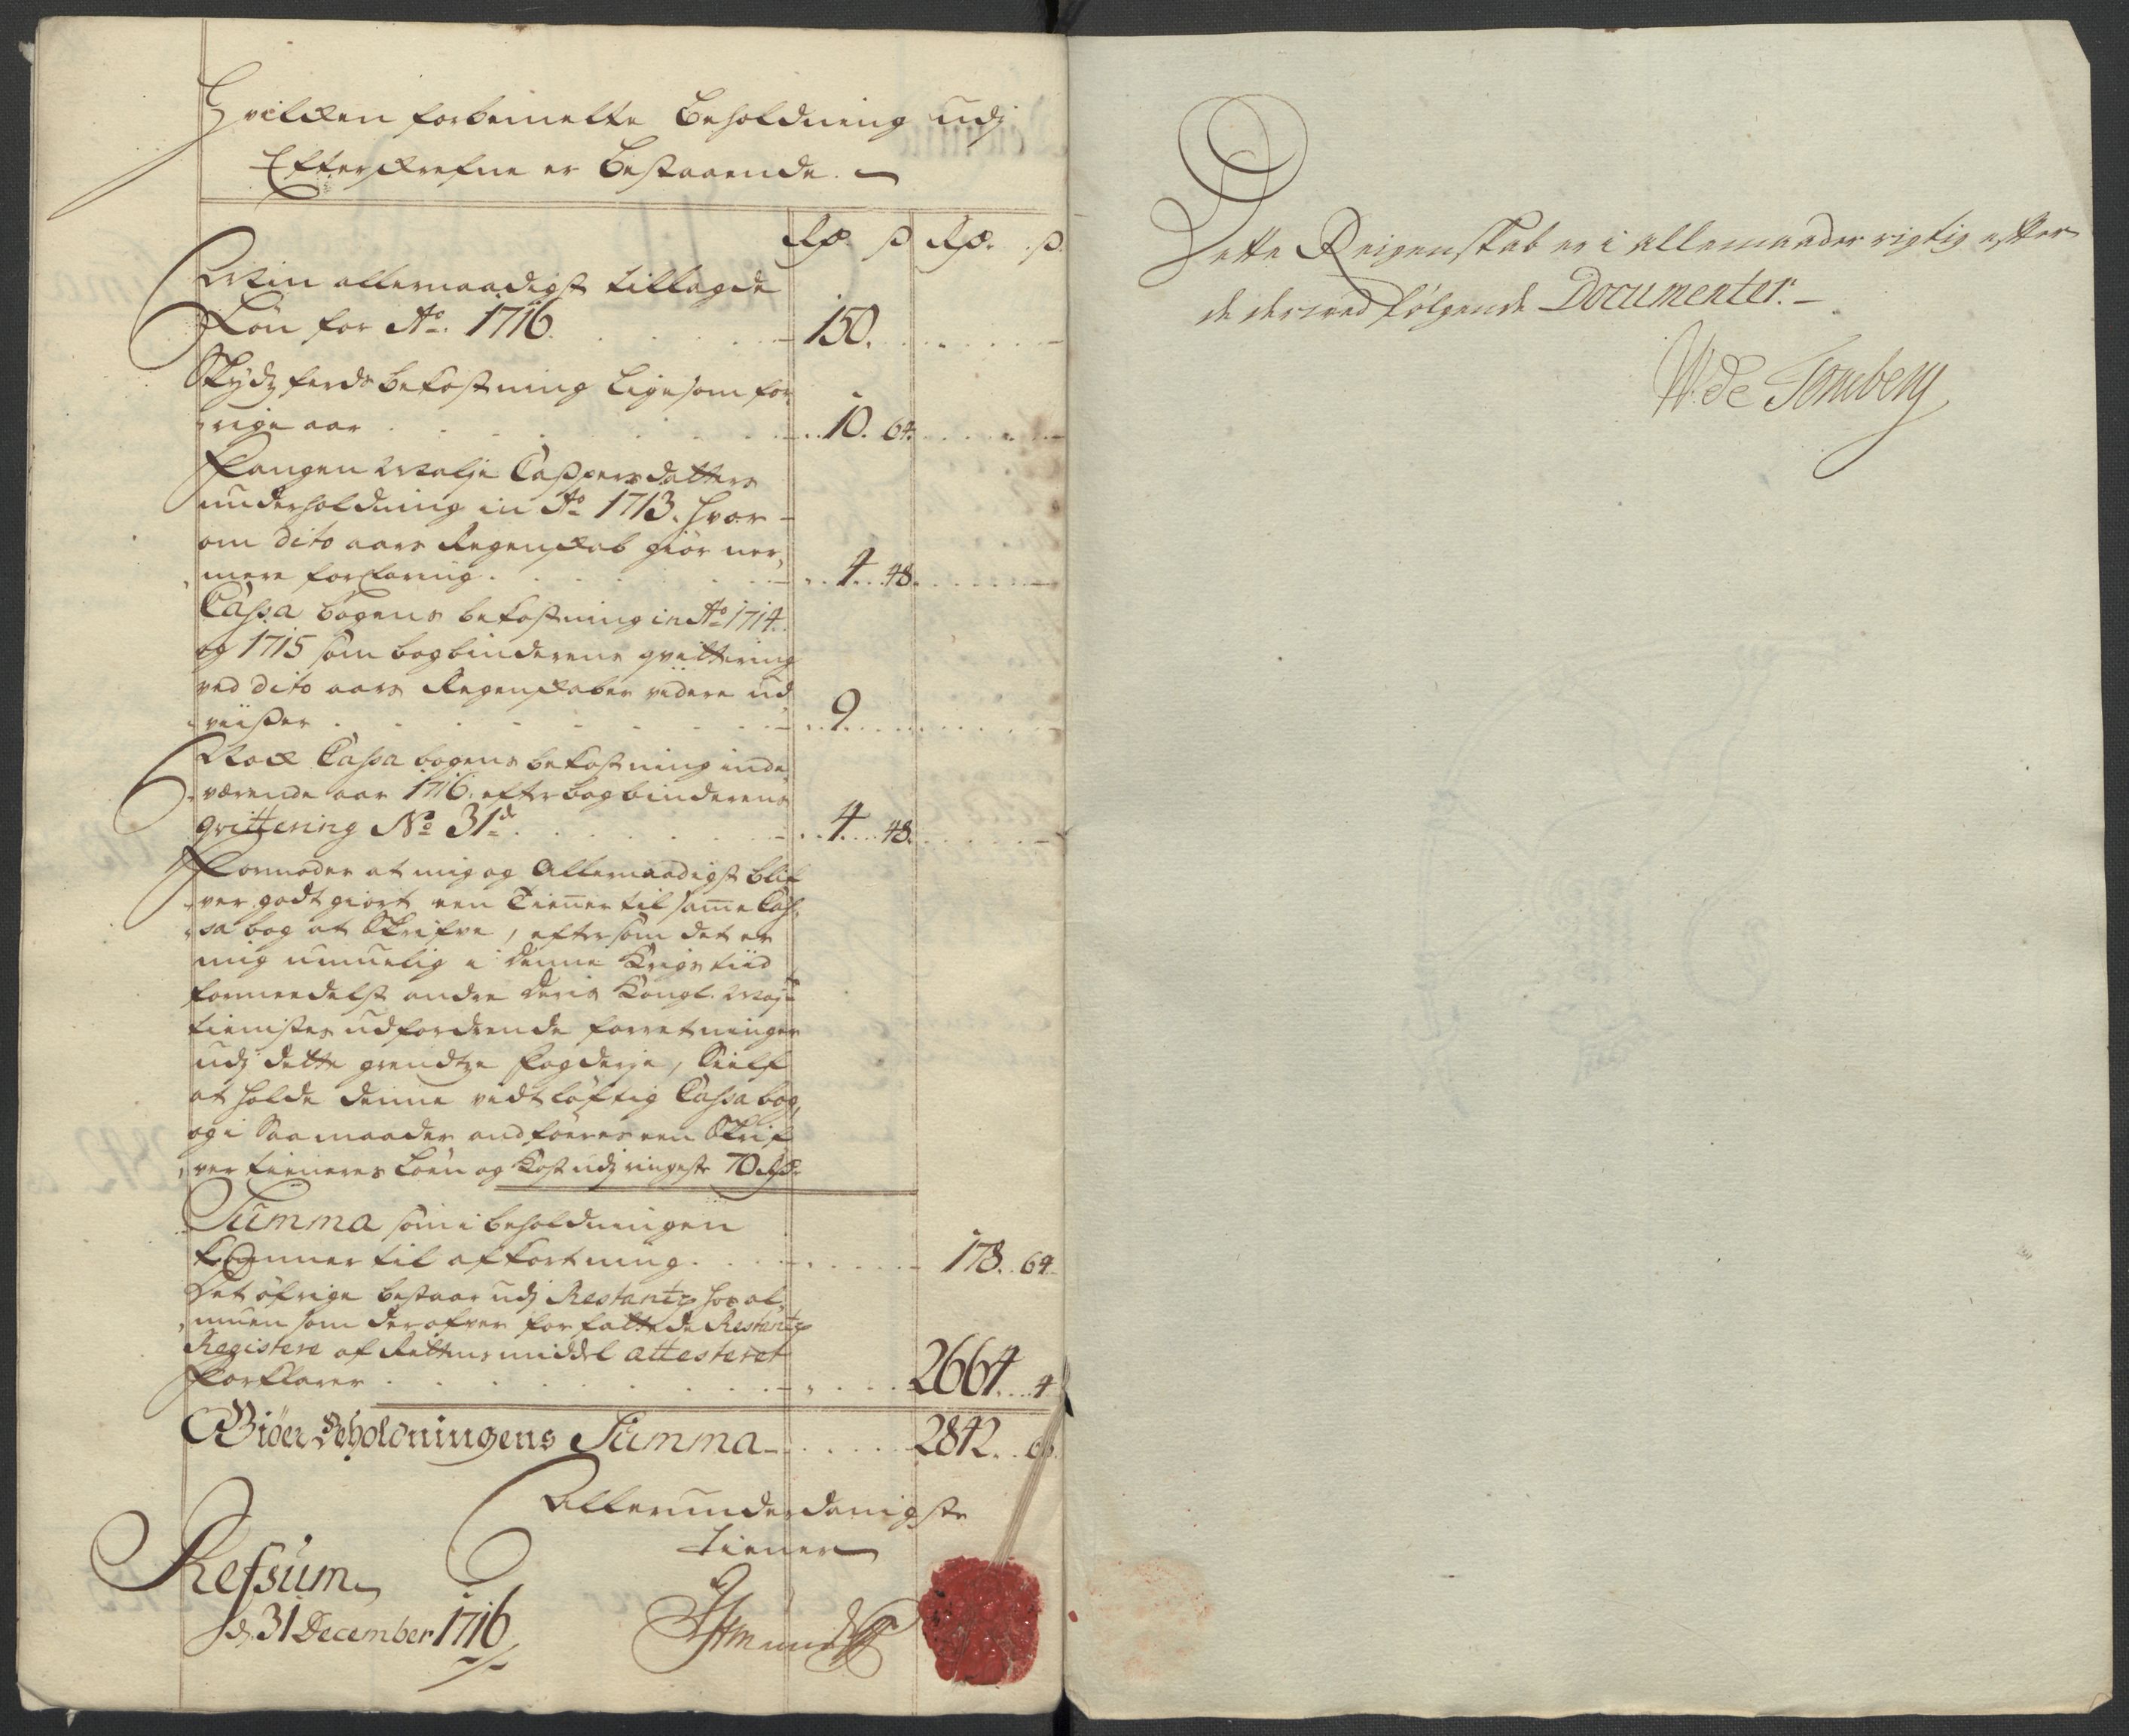 Hvilken forbemelte Beholdning udj
Efterskrefne er bestaaende.
Rdr. ß Rdr. ß.
Min allernaadigst tillagde
Løn for Ao. 1716. 150.
Skydzferds bekostning ligesom for-
rige aar 10. 64.
Fangen Malje Caspersdatters
underholdning in Ao 1713. hvor-
om dito aars Regenskab giør ner-
mere forklaring. 4. 48.
Cassa bogens bekostning in Ao 1714.
og 1715 som bogbinderens qvittering
ved dito aars Regenskaber videre ud
viißer 9.
Nock Cassa bogens bekostning inde-
værende aar 1716. efter bogbinderens
qvittering No 31d. 4. 48.
Formoder at mig og Allernaadigst blif-
ver godtgiort een Tienner til samme Cas-
sa bog at Skrifve, eftersom det er
mig umuelig i denne Krigs tiid
formedelst andre deris Kongl. Mayts
tienistes udfordrende forretninger
udj dette grendtze fogderje, Sielf
at holde denne vidtløftig Cassa bog,
og i saa maader andføres een Skrif-
ver tieneres Løn og Kost udj ringeste 70 Rdr
Summa som i beholdningen
kommer til afkortning. 178. 64
Det øfrige bestaar udj Restantz hos al-
muen som derofver forfattede Restantz
Registere af Rettens middel attesteret
forklarer 2664. 4
Giør Beholdningens Summa 2842.
Allerunderdanigste
tiener
Refsum
d. 31 December 1716
Dette Reigenskab er i allemaader rigtig efter
de derved følgende Documenter.
W. de Tonsberg